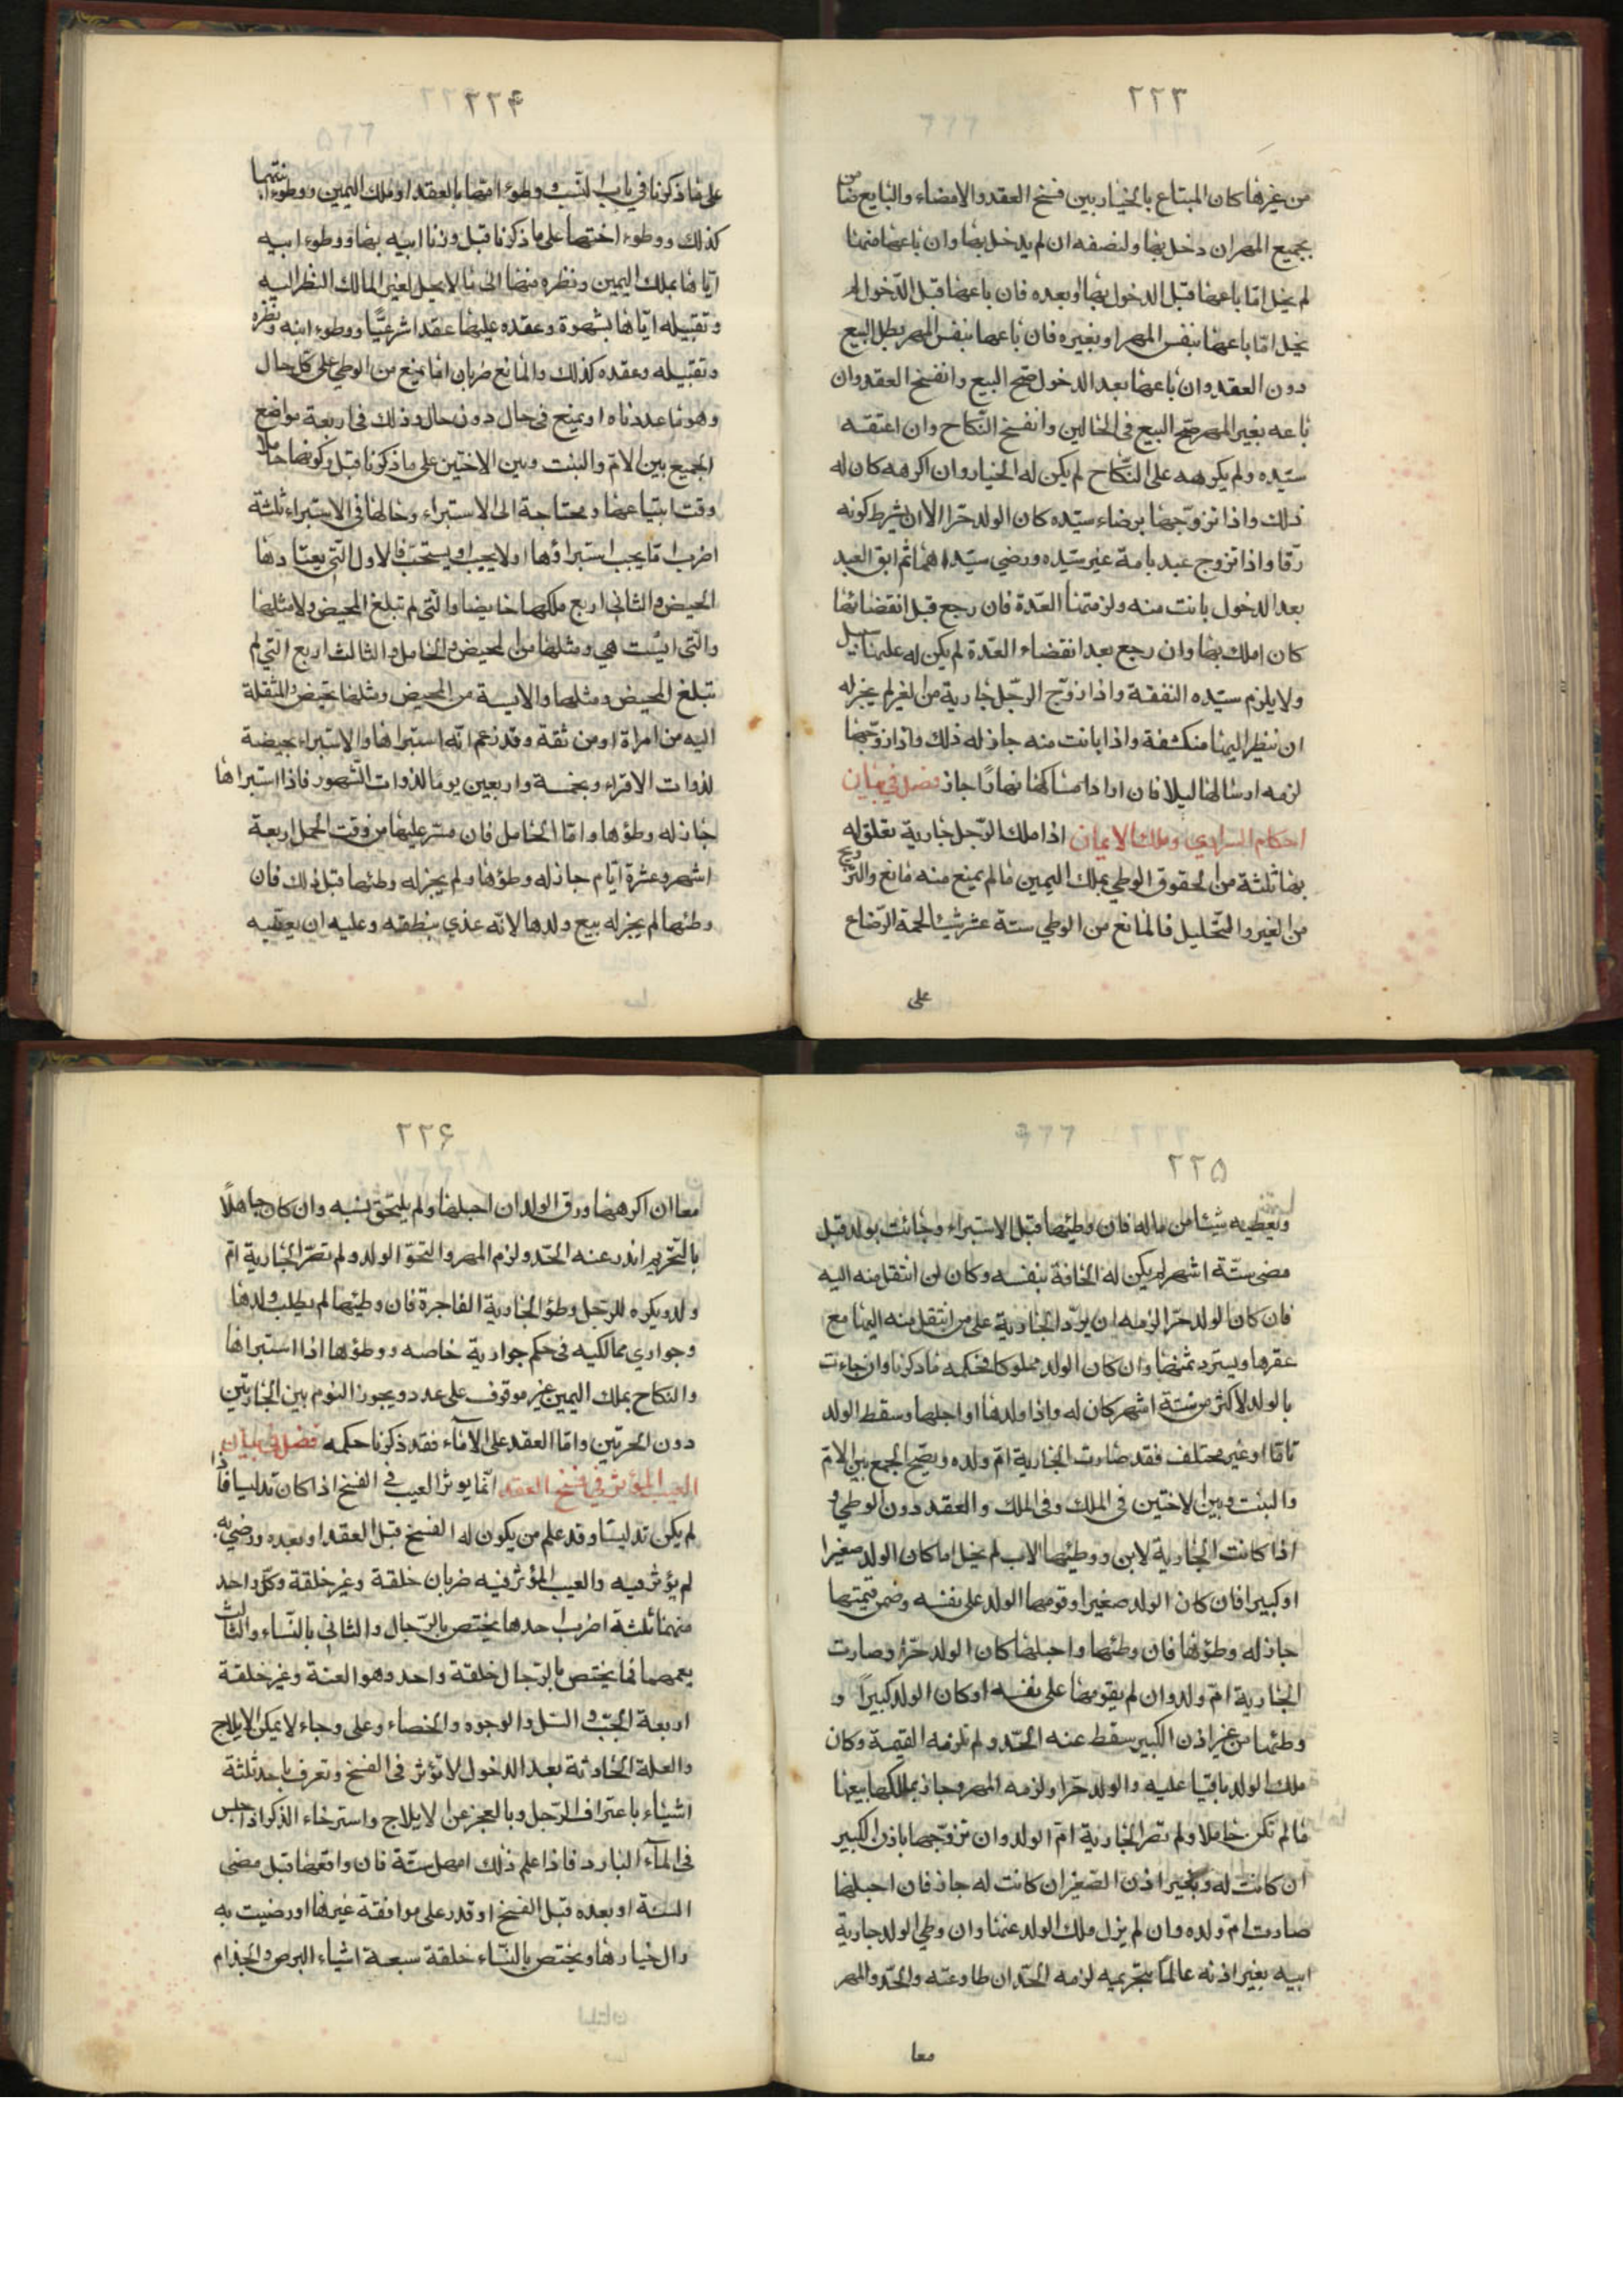 ٢٢٣
من غيرها كان المبتاع بالخيار بين فسخ العقد والامضاء والبايع ضامن
بجميع المهر ان دخل بها ولنصفه ان لم يدخل بها وان باعها منهما
لم يخل اما باعها قبل الدخول بها او بعده فان باعها قبل الدخول لم
يخل اما باعها بنفس المهر او بغيره فان باعها بنفس المهر بطل البيع
دون العقد وان باعها بعد الدخول صح البيع وانفسخ العقد وان
باعه بغير المهر صح البيع في الحالين وانفسخ النكاح وان اعتقه
سيده ولم يكرهه على النكاح لم يكن له الخيار وان اكرهه كان له
ذلك واذا تزوجها برضاء سيده كان الولد حرا الا ان يشرط كونه
رقا واذا تزوج عبد بامة غير سيده ورضي سيداهما ثم ابق العبد
بعد الدخول بانت منه ولزمتها العدة فان رجع قبل انقضائها
كان املك بها وان رجع بعد انقضاء العدة لم يكن له عليها سبيل
ولا يلزم سيده النفقة واذا زوج الرجل جارية من الغير لم يجز له
ان ينظر اليها منكشفة واذا بانت منه جاز له ذلك واذا زوجها
لزمه ارسالها ليلا فان اراد امساكها نهارا جاز فصل في بيان
احكام السراري وملك الايمان اذا ملك الرجل جارية تعلق له
بها ثلثة من الحقوق الوطي بملك اليمين ما لم يمنع منه مانع والتزويج
من الغير والتحليل فالمانع من الوطي ستة عشر شيئا لحمة الرضاع
على
٢٢۴
على ما ذكرنا في باب النسب ووطوء امها بالعقد او ملك اليمين ووطوء ابنتها
كذلك ووطوء اختها على ما ذكرنا قبل وزنا ابيه بها ووطوء ابيه
اياها بملك اليمين ونظره منها الى ما لا يحل لغير المالك النظر اليه
وتقبيله اياها بشهوة وعقده عليها عقدا شرعيا ووطوء ابنه ونظره
وتقبيله وعقده كذلك والمانع ضربان اما يمنع من الوطي على كل حال
وهو ما عددناه او يمنع في حال دون حال وذلك في اربعة مواضع
الجميع بين الام والبنت وبين الاختين على ما ذكرنا قبل وكونها حاملا
وقت ابتياعها ومحتاجة الى الاستبراء وحالها في الاستبراء ثلثة
اضرب اما يجب استبراؤها او لا يجب او يستحب فالاول التي يعتادها
الحيض والثاني اربع ملكها حايضا والتي لم تبلغ المحيض ولا مثلها
والتي ايست هي ومثلها من المحيض والحامل والثالث اربع التي لم
تبلغ المحيض ومثلها والايسة من المحيض ومثلها تحيض والمنتقلة
اليه من امراة او من ثقة وقد زعم انه استبراها والاستبراء بحيضة
لذوات الاقراء وبخمسة واربعين يوما لذوات الشهور فاذا استبراها
جاز له وطؤها واما الحامل فان مر عليها من وقت الحمل اربعة
اشهر وعشرة ايام جاز له وطؤها ولم يجز له وطئها قبل ذلك فان
وطئها لم يجز له بيع ولدها لانه غذي بنطفته وعليه ان يعتقه
٢٢۵
ويعطيه شيئا من ماله فان وطئها قبل الاستبراء وجائت بولد قبل
مضى ستة اشهر لم يكن له الحاقة بنفسه وكان لمن انتقل منه اليه
فان كان الولد حرا لزمه ان يرد الجارية على من انتقل منه اليها مع
عقرها ويسترد ثمنها وان كان الولد مملوكا فحكمه ما ذكرنا وان جاءت
بالولد لاكثر من ستة اشهر كان له واذا اولدها او احبلها وسقط الولد
تاما او غير مختلف فقد صارت الجارية ام ولده ويصح الجمع بين الام
والبنت وبين الاختين في الملك وفي الملك والعقد دون الوطي و
اذا كانت الجارية لابن ووطئها الاب لم يخل اما كان الولد صغيرا
او كبيرا فان كان الولد صغيرا وقومها الولد على نفسه وضمن قيمتها
جاز له وطؤها فان وطئها واحبلها كان الولد حرا وصارت
الجارية ام ولد وان لم يقومها على نفسه او كان الولد كبيرا و
وطئها من غير اذن الكبير سقط عنه الحد ولم تلزمه القيمة وكان
ملك الولد باقيا عليه والولد حرا ولزمه المهر وجاز لمالكها بيعها
ما لم تكن حاملا ولم تصر الجارية ام الولد وان تزوجها باذن الكبير
ان كانت له وبغير اذن الصغير ان كانت له جاز فان احبلها
صارت ام ولده وان لم يزل ملك الولد عنها وان وطي الولد جارية
ابيه بغير اذنه عالما بتحريمه لزمه الحد ان طاوعته والحد والمهر
معا
٢٢۶
معا ان اكرهها ورق الولد ان احبلها ولم يلتحق نسبه وان كان جاهلا
بالتحريم اندرء عنه الحد ولزم المهر والتحق الولد ولم تصر الجارية ام
ولد ويكره للرجل وطؤ الجارية الفاجرة فان وطئها لم يطلب ولدها
وجواري مماليكه في حكم جوارية خاصه ووطؤها اذا استبراها
والنكاح بملك اليمين غير موقوف على عدد ويجوز النوم بين الجاريتين
دون الحرتين واما العقد على الاماء فقد ذكرنا حكمه فصل في بيان
العيب المؤثر في فسخ العقد انما يوثر العيب في الفسخ اذا كان تدليسا فاذا
لم يكن تدليسا وقد علم من يكون له الفسخ قبل العقد او بعده ورضي به
لم يؤثر فيه والعيب المؤثر فيه ضربان خلقة وغير خلقة وكل واحد
منهما ثلثة اضرب احدها يختص بالرجال والثاني بالنساء والثالث
يعمهما فما يختص بالرجال خلقة واحد وهو العنة وغير خلقة
اربعة الجب والسل والوجوه والخصاء وعلى وجاء لا يمكن الايلاج
والعلة الحادثة بعد الدخول لا تؤثر في الفسخ وتعرف باحد ثلثة
اشياء باعتراف الرجل وبالعجز عن الايلاج واسترخاء الذكر اذا جلس
في الماء البارد فاذا علم ذلك امهل سنة فان واقعها قبل مضى
السنة او بعده قبل الفسخ او قدر على موافقة غيرها او رضيت به
زال خيارها ويختص بالنساء خلقة سبعة اشياء البرص والجذام